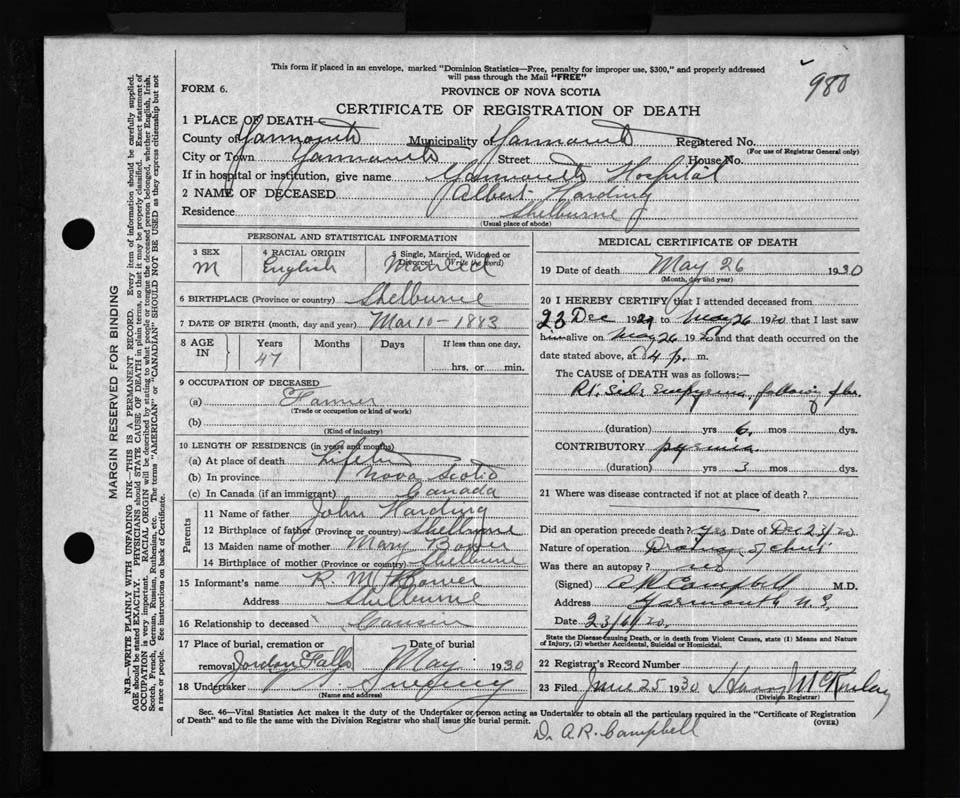 This form if placed in an envelope, marked "Dominion Statistics—Free, penalty for improper use, $300," and properly addressed
will pass through the Mail "FREE"
980
FORM 6.
PROVINCE OF NOVA SCOTIA
CERTIFICATE OF REGISTRATION OF DEATH
1 PLACE OF DEATH
County of Yarmouth Municipality of Yarmouth Registered No.
(For use of Registrar General only)
City or Town Yarmouth Street House No.
If in hospital or institution, give name Yarmouth Hospital
2 NAME OF DECEASED Albert Harding
Residence Shelburne
(Usual place of abode)
PERSONAL AND STATISTICAL INFORMATION
3 SEX 4 RACIAL ORIGIN 5 Single, Married, Widowed or Divorced. (Write the word)
M English Married
6 BIRTHPLACE (Province or country) Shelburne
7 DATE OF BIRTH (month, day and year) Mar 10 - 1883
8 AGE IN Years Months Days If less than one day,
47
hrs. or min.
9 OCCUPATION OF DECEASED
(a) Farmer
(Trade or occupation or kind of work)
(b)
(Kind of industry)
10 LENGTH OF RESIDENCE (in years and months)
(a) At place of death Lifetime
(b) In province Nova Scotia
(c) In Canada (if an immigrant) Canada
Parents
11 Name of father John Harding
12 Birthplace of father (Province or country) Shelburne
13 Maiden name of mother Mary Bower
14 Birthplace of mother (Province or country) Shelburne
15 Informant's name R. M. Bower
Address Shelburne
16 Relationship to deceased Cousin
17 Place of burial, cremation or Date of burial
removal Jordan Falls May 1930
18 Undertaker Sweeny
(Name and address)
MEDICAL CERTIFICATE OF DEATH
19 Date of death May 26 1930
(Month, day and year)
20 I HEREBY CERTIFY that I attended deceased from
23 Dec 1929 to May 26 1930 that I last saw
him alive on May 26 1930 and that death occurred on the
date stated above, at 4 p. m.
The CAUSE of DEATH was as follows:—
Rt. side Empyema, following
(duration) yrs 6 mos dys.
CONTRIBUTORY pyemia
(duration) yrs 3 mos dys.
21 Where was disease contracted if not at place of death?
Did an operation precede death? Yes Date of Dec 23/
Nature of operation Drainage of chest
Was there an autopsy? no
(Signed) A R Campbell M.D.
Address Yarmouth N.S.
Date 23/6/30
State the Disease causing Death, or in death from Violent Causes, state (1) Means and Nature
of Injury, (2) whether Accidental, Suicidal or Homicidal.
22 Registrar's Record Number
23 Filed June 25 1930 Harry McKinlay
(Division Registrar)
Sec. 46—Vital Statistics Act makes it the duty of the Undertaker or person acting as Undertaker to obtain all the particulars required in the "Certificate of Registration
of Death" and to file the same with the Division Registrar who shall issue the burial permit. (OVER)
Dr. A.R. Campbell
MARGIN RESERVED FOR BINDING
N.B.—WRITE PLAINLY WITH UNFADING INK—THIS IS A PERMANENT RECORD. Every item of information should be carefully supplied.
AGE should be stated EXACTLY. PHYSICIANS should STATE CAUSE OF DEATH in plain terms, so that it may be properly classified. Exact statement of
OCCUPATION is very important. RACIAL ORIGIN will be described by stating to what people or tongue the deceased person belonged, whether English, Irish,
Scotch, French, German, Russian, Ruthenian, etc. The terms "AMERICAN" or "CANADIAN" SHOULD NOT BE USED as they express citizenship but not
a race or people. See instructions on back of Certificate.